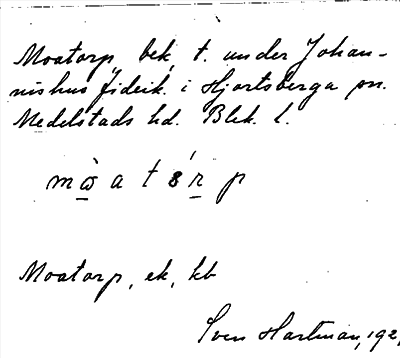 Moatorp, bek, t. under Johan-
nishus fideik. i Hjortsberga sn.
Medelstads hd. Blek. l.
mɷ̀ a t ó r p
Moatorp, ek, kb
Sven Hartman, 192